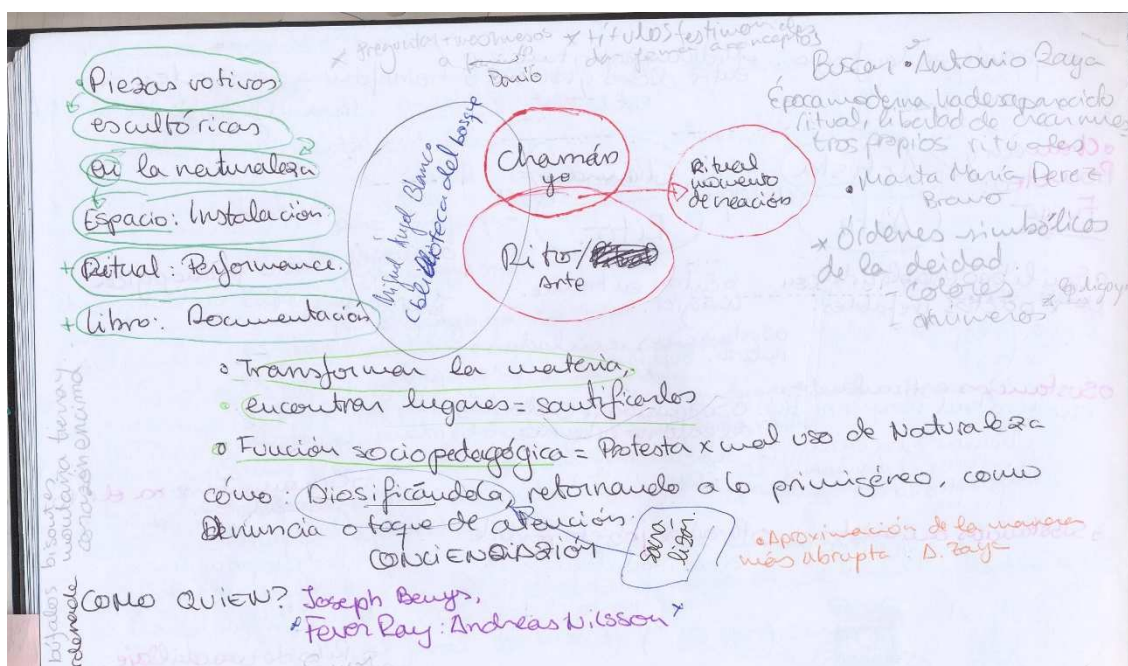 x preguntar x títulos testimoniales
a
David
Piezas votivas
escultóricas
en la naturaleza
Espacio: Instalación
+ Ritual: Performance.
+ Libro: Documentación
Miguel Ángel Blanco
biblioteca del bosque
Chamán
yo
Ritual
momento
de creación
Rito/
Arte
Buscar • Antonio Zaya
Época moderna ha desaparecido
ritual, libertad de crear nues
tros propios rituales
• Marta María Perez
Bravo
x Órdenes simbólicos
de la deidad.
- colores
- números
• Transformar la materia,
• encontrar lugares = santificarlos
• Función sociopedagógica = Protesta x mal uso de Naturaleza
cómo: Diosificándola, retornando a lo primigéneo, como
Denuncia o toque de atención.
CONCIENCIAZIÓN
• Aproximación de la manera
más abrupta A. Zaya
COMO QUIEN? Joseph Beuys,
* Fever Ray: Andreas Nilsson x
búfalos bisontes
montaña tierra y
corazón encima